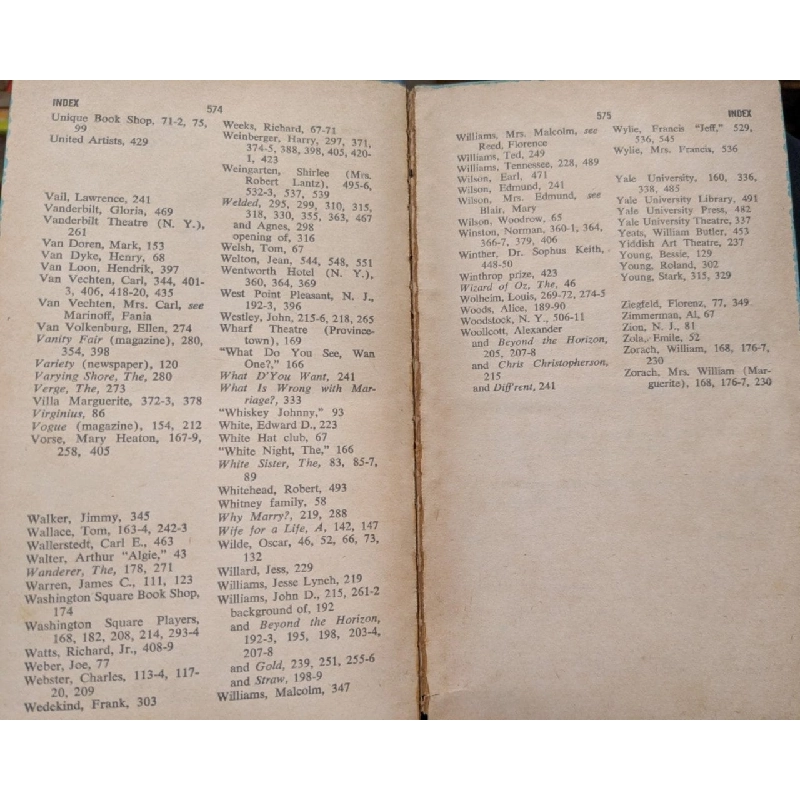 INDEX 574
Unique Book Shop, 71-2, 75,
99
United Artists, 429
Vail, Lawrence, 241
Vanderbilt, Gloria, 469
Vanderbilt Theatre (N. Y.),
261
Van Doren, Mark, 153
Van Dyke, Henry, 68
Van Loon, Hendrik, 397
Van Vechten, Carl, 344, 401-
3, 406, 418-20, 435
Van Vechten, Mrs. Carl, see
Marinoff, Fania
Van Volkenburg, Ellen, 274
Vanity Fair (magazine), 280,
354, 398
Variety (newspaper), 120
Varying Shore, The, 280
Verge, The, 273
Villa Marguerite, 372-3, 378
Virginius, 86
Vogue (magazine), 154, 212
Vorse, Mary Heaton, 167-9,
258, 405
Walker, Jimmy, 345
Wallace, Tom, 163-4, 242-3
Wallerstedt, Carl E., 463
Walter, Arthur "Algie," 43
Wanderer, The, 178, 271
Warren, James C., 111, 123
Washington Square Book Shop,
174
Washington Square Players,
168, 182, 208, 214, 293-4
Watts, Richard, Jr., 408-9
Weber, Joe, 77
Webster, Charles, 113-4, 117-
20, 209
Wedekind, Frank, 303
Weeks, Richard, 67-71
Weinberger, Harry, 297, 371,
374-5, 388, 398, 405, 420-
1, 423
Weingarten, Shirlee (Mrs.
Robert Lantz), 495-6,
532-3, 537, 539
Welded, 295, 299, 310, 315,
318, 330, 355, 363, 467
and Agnes, 298
opening of, 316
Welsh, Tom, 67
Welton, Jean, 544, 548, 551
Wentworth Hotel (N. Y.),
360, 364, 369
West Point Pleasant, N. J.,
192-3, 396
Westley, John, 215-6, 218, 265
Wharf Theatre (Province-
town), 169
"What Do You See, Wan
One?," 166
What D'You Want, 241
What Is Wrong with Mar-
riage?, 333
"Whiskey Johnny," 93
White, Edward D., 223
White Hat club, 67
"White Night, The," 166
White Sister, The, 83, 85-7,
89
Whitehead, Robert, 493
Whitney family, 58
Why Marry?, 219, 288
Wife for a Life, A, 142, 147
Wilde, Oscar, 46, 52, 66, 73,
132
Willard, Jess, 229
Williams, Jesse Lynch, 219
Williams, John D., 215, 261-2
background of, 192
and Beyond the Horizon,
192-3, 195, 198, 203-4,
207-8
and Gold, 239, 251, 255-6
and Straw, 198-9
Williams, Malcolm, 347
575 INDEX
Williams, Mrs. Malcolm, see
Reed, Florence
Williams, Ted, 249
Williams, Tennessee, 228, 489
Wilson, Earl, 471
Wilson, Edmund, 241
Wilson, Mrs. Edmund, see
Blair, Mary
Wilson, Woodrow, 65
Winston, Norman, 360-1, 364,
366-7, 379, 406
Winther, Dr. Sophus Keith,
448-50
Winthrop prize, 423
Wizard of Oz, The, 46
Wolheim, Louis, 269-72, 274-5
Woods, Alice, 189-90
Woodstock, N. Y., 506-11
Woollcott, Alexander
and Beyond the Horizon,
205, 207-8
and Chris Christopherson,
215
and Diff'rent, 241
Wylie, Francis "Jeff," 529,
536, 545
Wylie, Mrs. Francis, 536
Yale University, 160, 336,
338, 485
Yale University Library, 491
Yale University Press, 482
Yale University Theatre, 337
Yeats, William Butler, 453
Yiddish Art Theatre, 237
Young, Bessie, 129
Young, Roland, 302
Young, Stark, 315, 329
Ziegfeld, Florenz, 77, 349
Zimmerman, Al, 67
Zion, N. J., 81
Zola, Emile, 52
Zorach, William, 168, 176-7,
230
Zorach, Mrs. William (Mar-
guerite), 168, 176-7, 230